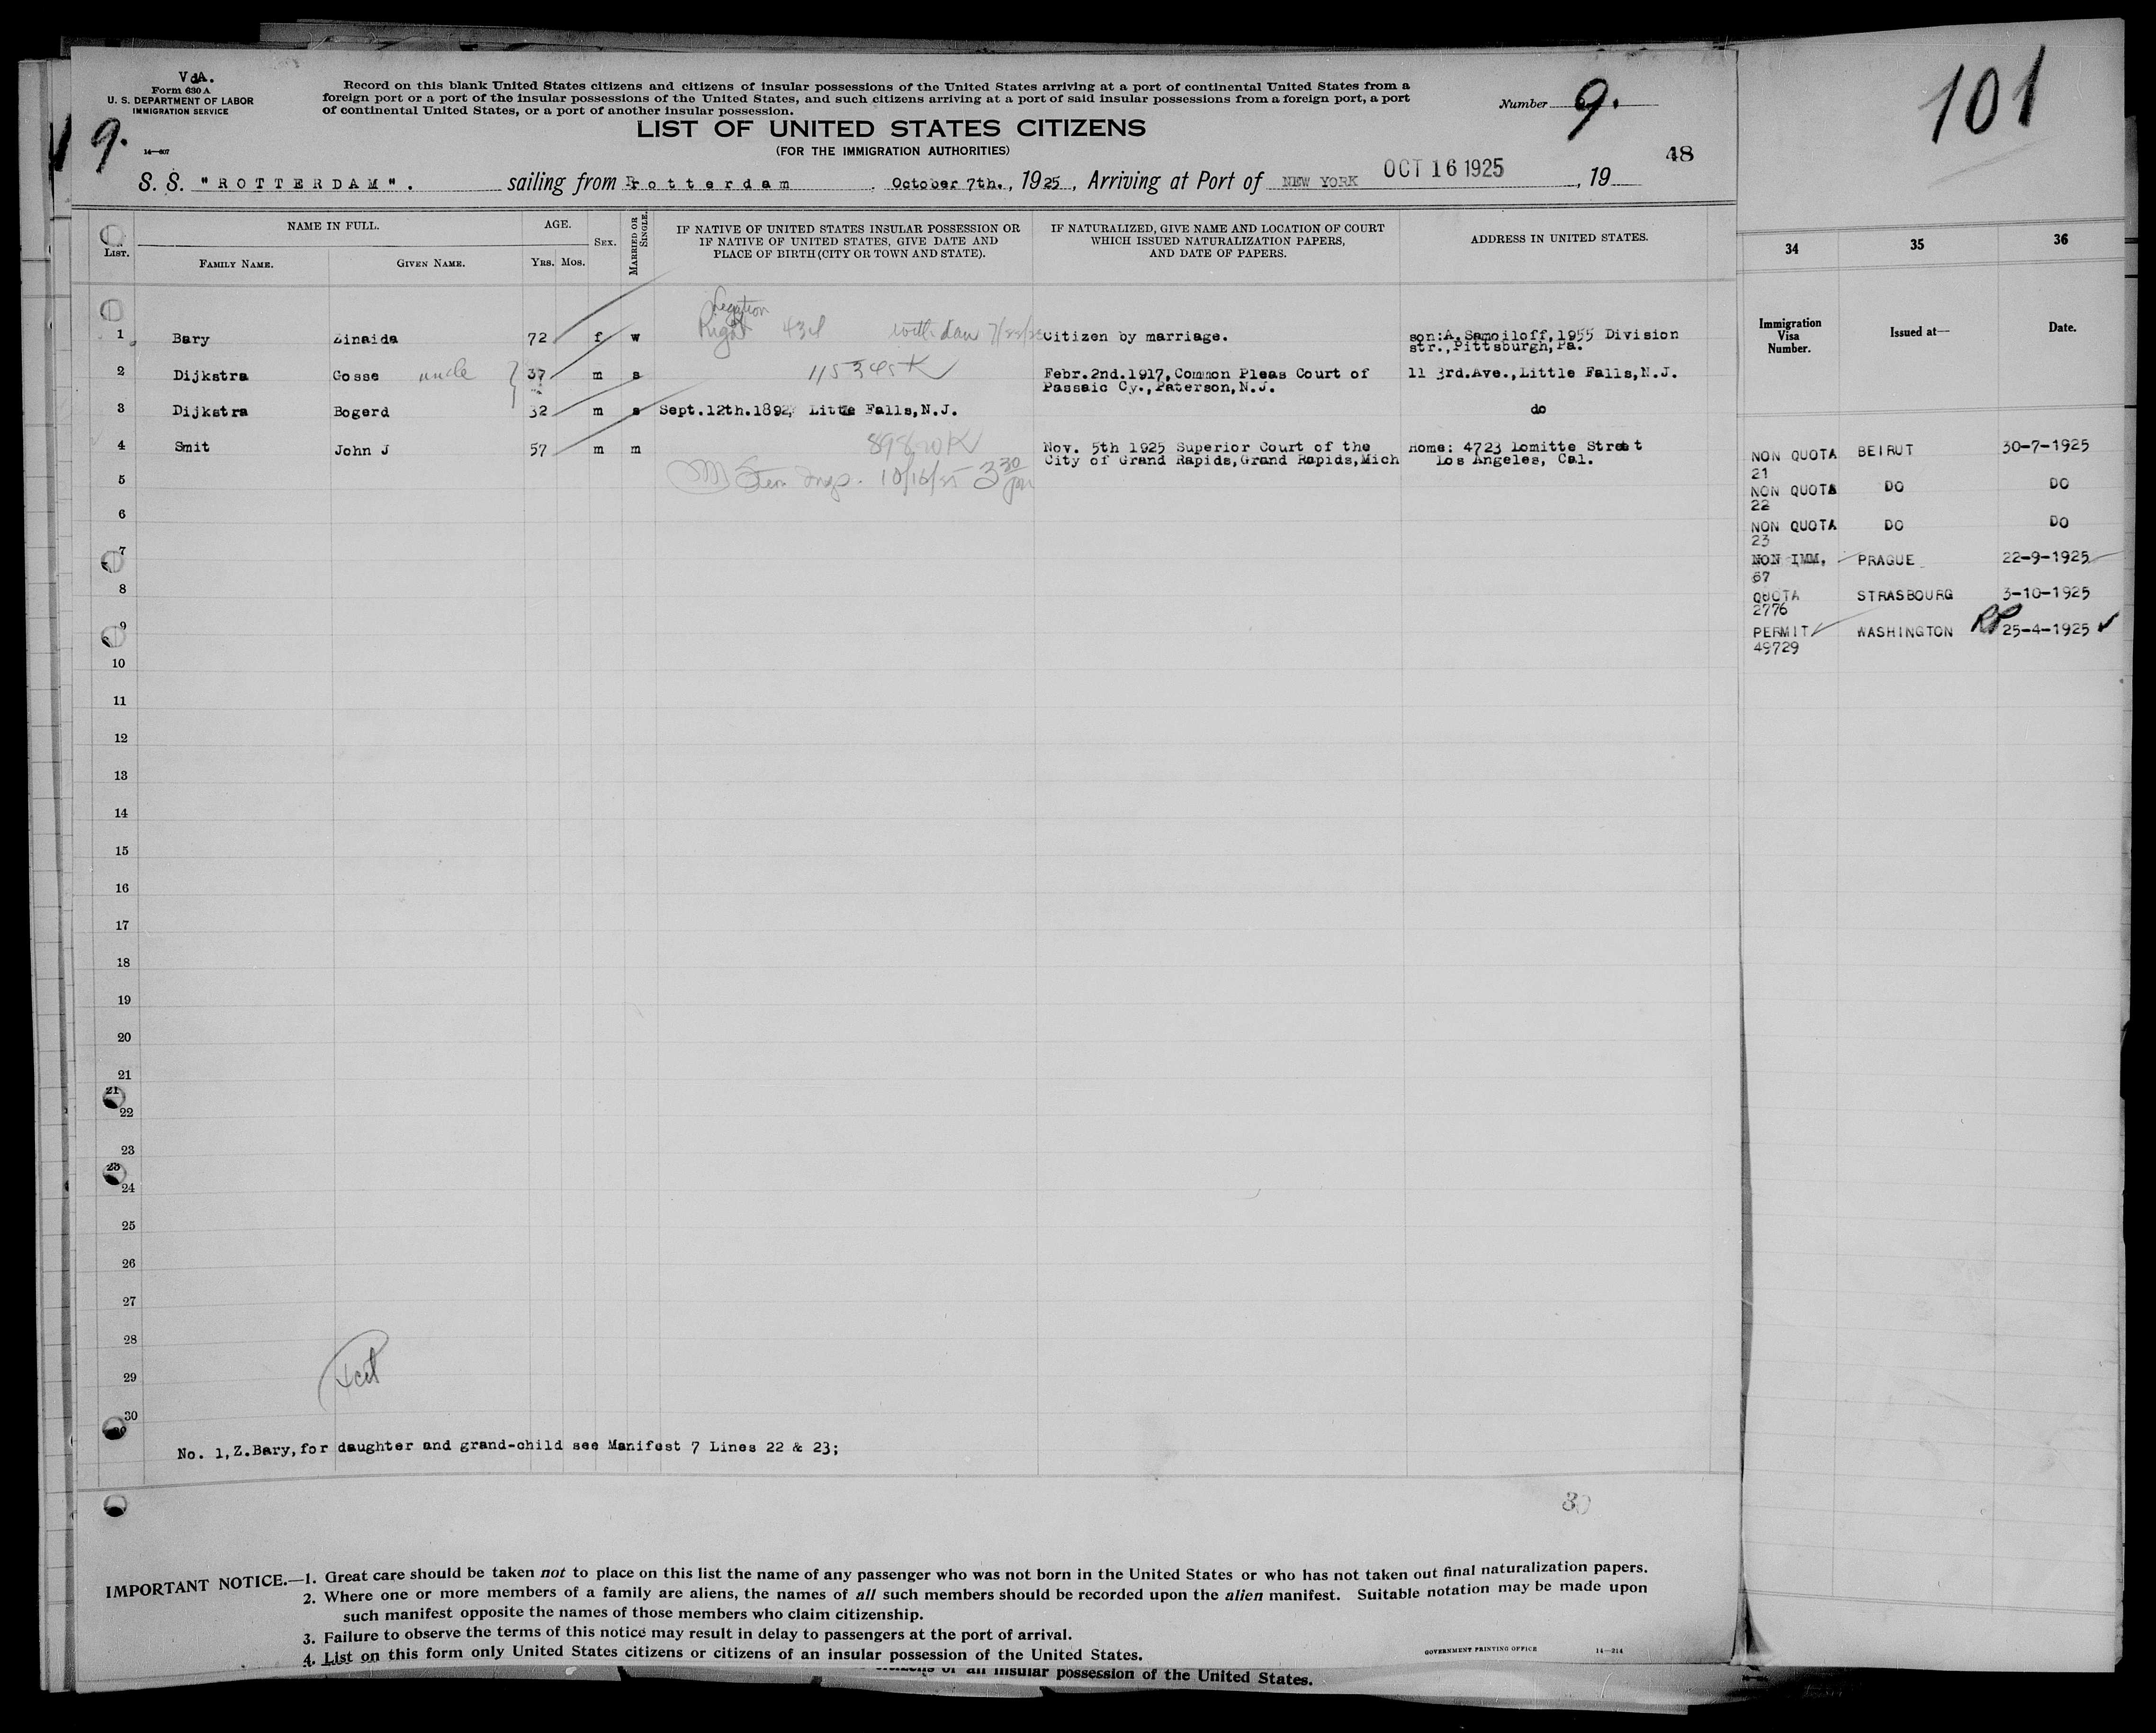 V dA.
Form 630 A
U. S. DEPARTMENT OF LABOR
IMMIGRATION SERVICE
9.
14—607
Record on this blank United States citizens and citizens of insular possessions of the United States arriving at a port of continental United States from a
foreign port or a port of the insular possessions of the United States, and such citizens arriving at a port of said insular possessions from a foreign port, a port
of continental United States, or a port of another insular possession.
Number 9.
101
LIST OF UNITED STATES CITIZENS
(FOR THE IMMIGRATION AUTHORITIES)
48
S. S. "ROTTERDAM". sailing from Rotterdam. October 7th., 1925, Arriving at Port of NEW YORK OCT 16 1925, 19
LIST. NAME IN FULL. AGE. SEX. MARRIED OR SINGLE. IF NATIVE OF UNITED STATES INSULAR POSSESSION OR IF NATIVE OF UNITED STATES, GIVE DATE AND PLACE OF BIRTH (CITY OR TOWN AND STATE). IF NATURALIZED, GIVE NAME AND LOCATION OF COURT WHICH ISSUED NATURALIZATION PAPERS, AND DATE OF PAPERS. ADDRESS IN UNITED STATES.
FAMILY NAME. GIVEN NAME. YRS. MOS.
34 35 36
Immigration Visa Number. Issued at— Date.
Legation
1 Bary Zinaida 72 f w 43d Citizen by marriage. son:A.Samoiloff,1955 Division
str.,Pittsburgh,Pa.
2 Dijkstra Gosse uncle 37 m s 115345K Febr.2nd.1917,Common Pleas Court of 11 3rd.Ave.,Little Falls,N.J.
Passaic Cy.,Paterson,N.J.
3 Dijkstra Bogerd 32 m s Sept.12th.1892, Little Falls,N.J. do
4 Smit John J 57 m m Nov. 5th 1925 Superior Court of the Home: 4723 Lomitte Street
City of Grand Rapids,Grand Rapids,Mich Los Angeles, Cal.
5
6
7
8
9
10
11
12
13
14
15
16
17
18
19
20
21
22
23
24
25
26
27
28
29
30
NON QUOTA BEIRUT 30-7-1925
21
NON QUOTA DO DO
22
NON QUOTA DO DO
23
NON IMM, PRAGUE 22-9-1925
67
QUOTA STRASBOURG 3-10-1925
2776
PERMIT WASHINGTON RP 25-4-1925
49729
No. 1,Z.Bary,for daughter and grand-child see Manifest 7 Lines 22 & 23;
30
IMPORTANT NOTICE.—1. Great care should be taken not to place on this list the name of any passenger who was not born in the United States or who has not taken out final naturalization papers.
2. Where one or more members of a family are aliens, the names of all such members should be recorded upon the alien manifest. Suitable notation may be made upon
such manifest opposite the names of those members who claim citizenship.
3. Failure to observe the terms of this notice may result in delay to passengers at the port of arrival.
4. List on this form only United States citizens or citizens of an insular possession of the United States.
GOVERNMENT PRINTING OFFICE 14—214
citizens or an insular possession of the United States.